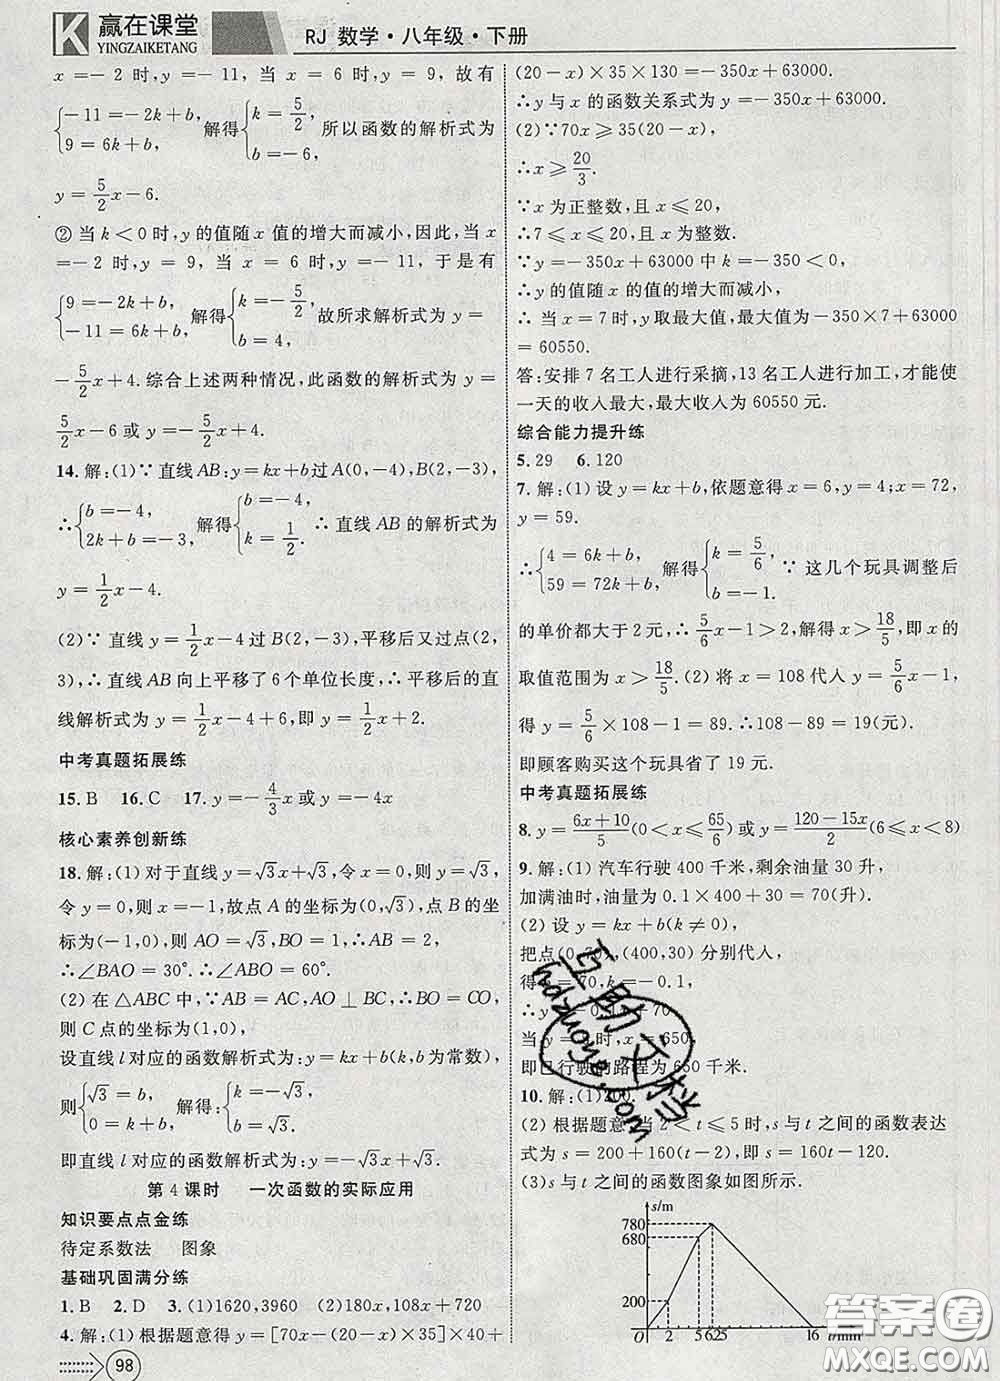 K 赢在课堂
YINGZAIKETANG
RJ 数学·八年级·下册
x=-2 时,y=-11,当 x=6 时,y=9,故有
{-11=-2k+b, 9=6k+b, 解得{k=5/2, b=-6, 所以函数的解析式为
y=5/2x-6.
②当 k<0 时,y 的值随 x 值的增大而减小,因此,当 x
=-2 时,y=9,当 x=6 时,y=-11,于是有
{9=-2k+b, -11=6k+b, 解得{k=-5/2, b=4, 故所求解析式为 y=
-5/2x+4.综合上述两种情况,此函数的解析式为 y=
5/2x-6 或 y=-5/2x+4.
14.解:(1)∵直线 AB:y=kx+b 过 A(0,-4),B(2,-3),
∴{b=-4, 2k+b=-3, 解得{b=-4, k=1/2. ∴直线 AB 的解析式为
y=1/2x-4.
(2)∵直线 y=1/2x-4 过 B(2,-3),平移后又过点(2,
3),∴直线 AB 向上平移了 6 个单位长度,∴平移后的直
线解析式为 y=1/2x-4+6,即 y=1/2x+2.
中考真题拓展练
15.B 16.C 17.y=-4/3x 或 y=-4x
核心素养创新练
18.解:(1)对于直线 y=√3x+√3,令 x=0,则 y=√3,
令 y=0,则 x=-1,故点 A 的坐标为(0,√3),点 B 的坐
标为(-1,0),则 AO=√3,BO=1,∴AB=2,
∴∠BAO=30°.∴∠ABO=60°.
(2)在△ABC 中,∵AB=AC,AO⊥BC,∴BO=CO,
则 C 点的坐标为(1,0),
设直线 l 对应的函数解析式为:y=kx+b(k,b 为常数),
则{√3=b, 0=k+b, 解得:{k=-√3, b=√3,
即直线 l 对应的函数解析式为:y=-√3x+√3.
第 4 课时 一次函数的实际应用
知识要点点金练
待定系数法 图象
基础巩固满分练
1.B 2.D 3.(1)1620,3960 (2)180x,108x+720
4.解:(1)根据题意得 y=[70x-(20-x)×35]×40+
98
(20-x)×35×130=-350x+63000.
∴y 与 x 的函数关系式为 y=-350x+63000.
(2)∵70x≥35(20-x),
∴x≥20/3.
∵x 为正整数,且 x≤20,
∴7≤x≤20,且 x 为整数.
∵y=-350x+63000 中 k=-350<0,
∴y 的值随 x 的值的增大而减小,
∴当 x=7 时,y 取最大值,最大值为-350×7+63000
=60550.
答:安排 7 名工人进行采摘,13 名工人进行加工,才能使
一天的收入最大,最大收入为 60550 元.
综合能力提升练
5.29 6.120
7.解:(1)设 y=kx+b,依题意得 x=6,y=4;x=72,
y=59.
∴{4=6k+b, 59=72k+b, 解得{k=5/6, b=-1. ∵这几个玩具调整后
的单价都大于 2 元,∴5/6x-1>2,解得 x>18/5,即 x 的
取值范围为 x>18/5.(2)将 x=108 代人 y=5/6x-1,
得 y=5/6×108-1=89.∴108-89=19(元).
即顾客购买这个玩具省了 19 元.
中考真题拓展练
8.y=6x+10/5(0<x≤65/6)或 y=120-15x/2(6≤x<8)
9.解:(1)汽车行驶 400 千米,剩余油量 30 升,
加满油时,油量为 0.1×400+30=70(升).
(2)设 y=kx+b(k≠0),
把点(0,70),(400,30)分别代人,
得b=70,k=-0.1,
∴y=-0.1x+70
当 y=5 时,x=650,
即已行驶的路程为 650 千米.
10.解:(1)200.
(2)根据题意,当 2<t≤5 时,s 与 t 之间的函数表达
式为 s=200+160(t-2)=160t-120.
(3)s 与 t 之间的函数图象如图所示.
s/m
780
680
200
0 2 5 6.25 16 t/min
互助文档
hdzuoye.com
答案圈
MXQE.COM